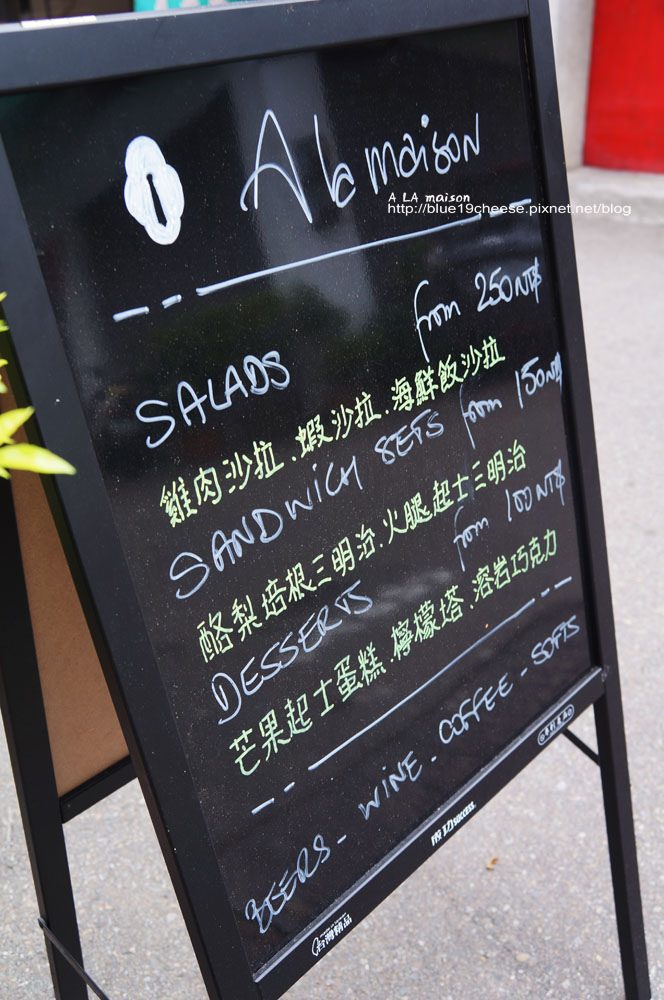 A la maison
A LA maison
http://blue19cheese.pixnet.net/blog
SALADS from 250 NT$
雞肉沙拉.蝦沙拉.海鮮飯沙拉
SANDWICH SETS from 150 NT$
酪梨培根三明治.火腿起士三明治
DESSERTS from 100 NT$
芒果起士蛋糕.檸檬塔.溶岩巧克力
BEERS - WINE - COFFEE - SOFTS
成功 SUCCESS
台灣精品